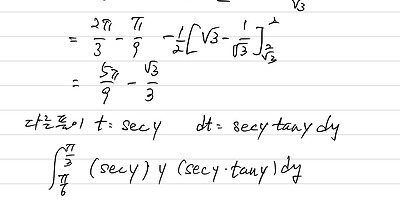 √3
= 2π/3 - π/9 - 1/2 [√3 - 1/√3]
= 5π/9 - √3/3
다른 풀이 t = sec y dt = sec y tan y dy
∫_{π/6}^{π/3} (sec y) y (sec y · tan y) dy